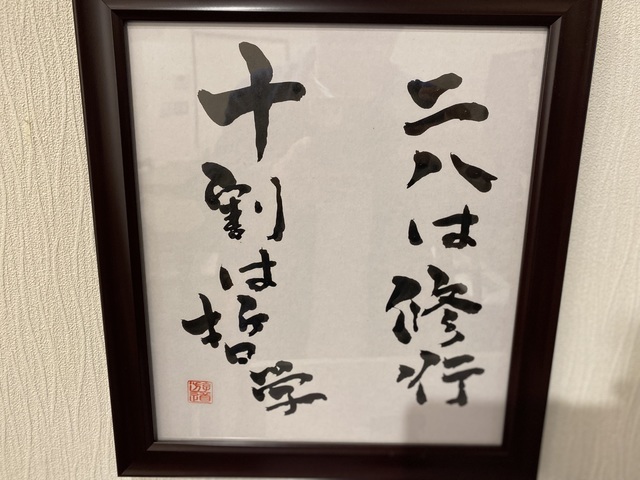 二八は修行
十割は哲学